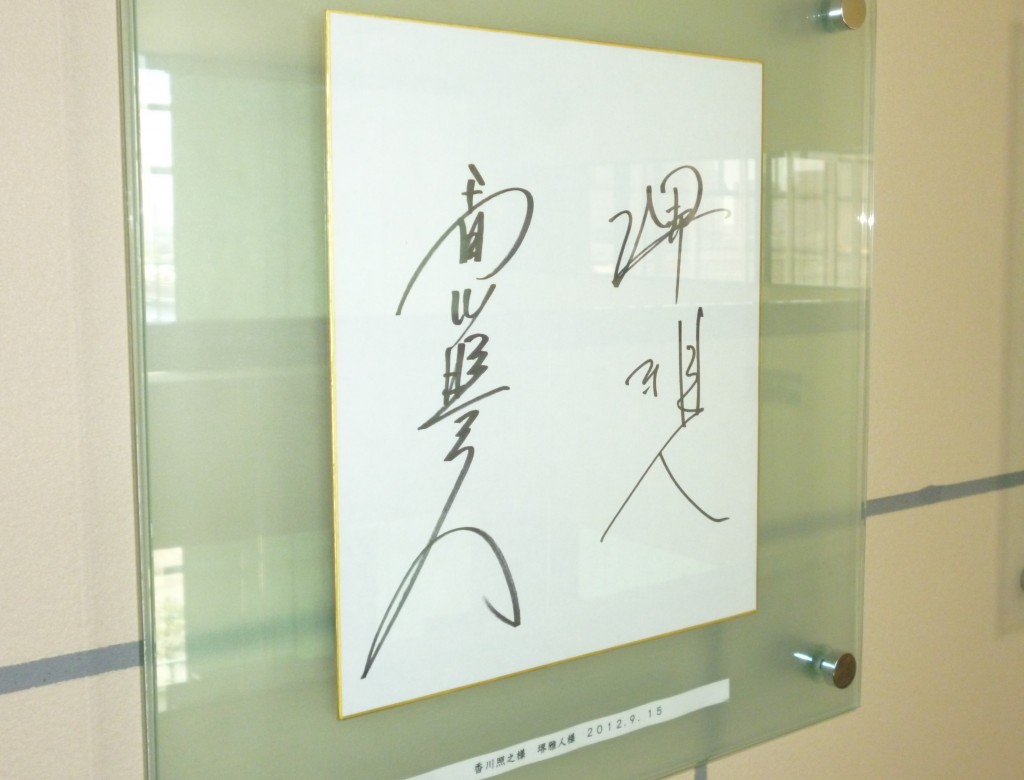 堺雅人
香川照之
香川照之様 堺雅人様 2012.9.15